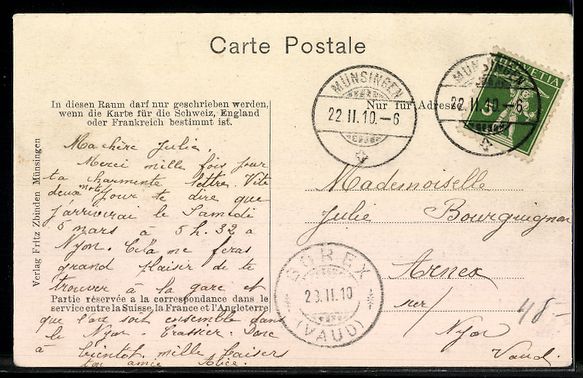 Carte Postale
HELVETIA
5
MÜNSINGEN
22.II.10.–6
MÜNSINGEN
22.II.10.–6
In diesen Raum darf nur geschrieben werden,
wenn die Karte für die Schweiz, England
oder Frankreich bestimmt ist.
Nur für Adresse
Ma chère Julie.
Merci mille fois pour
ta charmente lettre. Vite
deux mots pour te dire que
j'arriverai le Samedi
5 mars à 5 h. 32 à
Nyon. Cela me feras
grand plaisir de te
trouver à la gare et
Partie réservée à la correspondance dans le
service entre la Suisse, la France et l'Angleterre
que l'on soit ensemble dans
le Nyon Crassier. Donc
à bientôt mille baisers
ton amie Alice.
Verlag Fritz Zbinden Münsingen
Mademoiselle
Julie Bourguignon
Arnex
sur/
Nyon
Vaud.
48.-
BOREX
23.II.10
(VAUD)